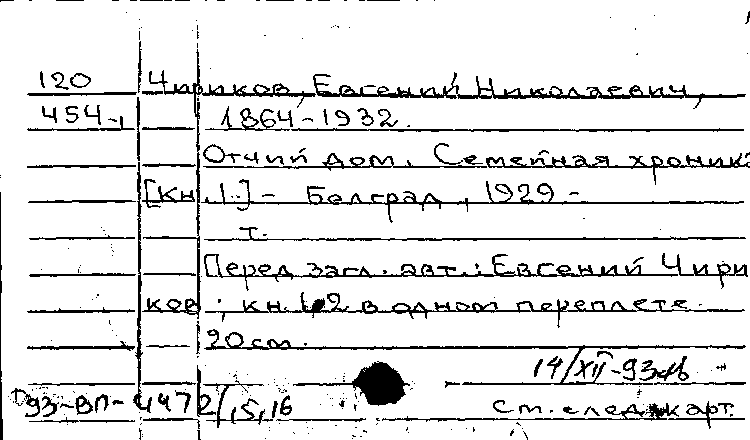 120 Чириков, Евгений Николаевич,
454-1 1864-1932.
Отчий дом. Семейная хроника
[Кн.1.] - Белград, 1929 -
т.
Перед загл. авт.: Евгений Чири
ков; кн. 1,2 в одном переплете.
20см.
14/XII-93
93-ВП-4472/15,16 см. след. карт.